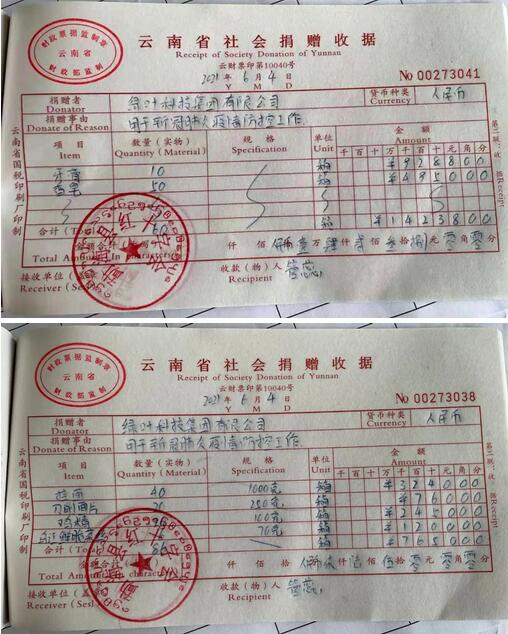 财政票据监制章
云南省
财政部监制
云南省社会捐赠收据
Receipt of Society Donation of Yunnan
云财票印第10040号
2021年6月4日
Y M D
No 00273041
捐赠者
Donator
绿叶科技集团有限公司
货币种类
Currency
人民币
捐赠事由
Donate of Reason
用于新冠肺炎疫情防控工作
项目
Item
数量(实物)
Quantity (Material)
规格
Specification
单位
Unit
金额
Amount
千百十万千百十元角分
牙膏 10 箱 ¥928800
50 箱 ¥495000
合计 60 箱 ¥1423800
Total Amount In
仟 佰 壹万肆仟贰佰叁拾捌元零角零分
接收单位
Receiver
收款(物)人
Recipient
管蕊
云南省国税印刷厂印制
Receipt
财政票据监制章
云南省
财政部监制
云南省社会捐赠收据
Receipt of Society Donation of Yunnan
云财票印第10040号
2021年6月4日
Y M D
No 00273038
捐赠者
Donator
绿叶科技集团有限公司
货币种类
Currency
人民币
捐赠事由
Donate of Reason
用于新冠肺炎疫情防控工作
项目
Item
数量(实物)
Quantity (Material)
规格
Specification
单位
Unit
金额
Amount
千百十万千百十元角分
40 1000克 箱 ¥324000
20 250克 箱 ¥76000
鸡精 100克 箱 ¥245000
70克 箱 ¥120000
86 箱 ¥765000
Total Amount
仟 佰 拾 柒仟陆佰伍拾零元零角零分
接收单位
Receiver
收款(物)人
Recipient
管蕊
云南省国税印刷厂印制
Receipt